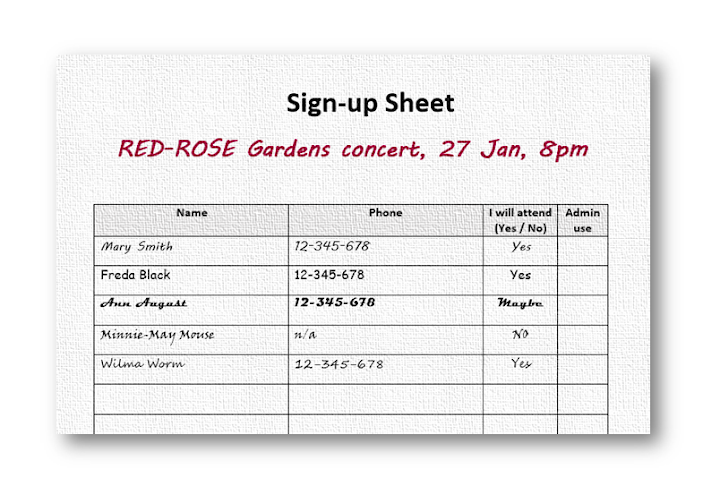 Sign-up Sheet
RED-ROSE Gardens concert, 27 Jan, 8pm
Name Phone I will attend (Yes / No) Admin use
Mary Smith 12-345-678 Yes
Freda Black 12-345-678 Yes
Ann August 12-345-678 Maybe
Minnie-May Mouse n/a NO
Wilma Worm 12-345-678 Yes